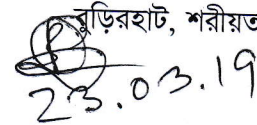 বুড়িরহাট, শরীয়ত
23.03.19